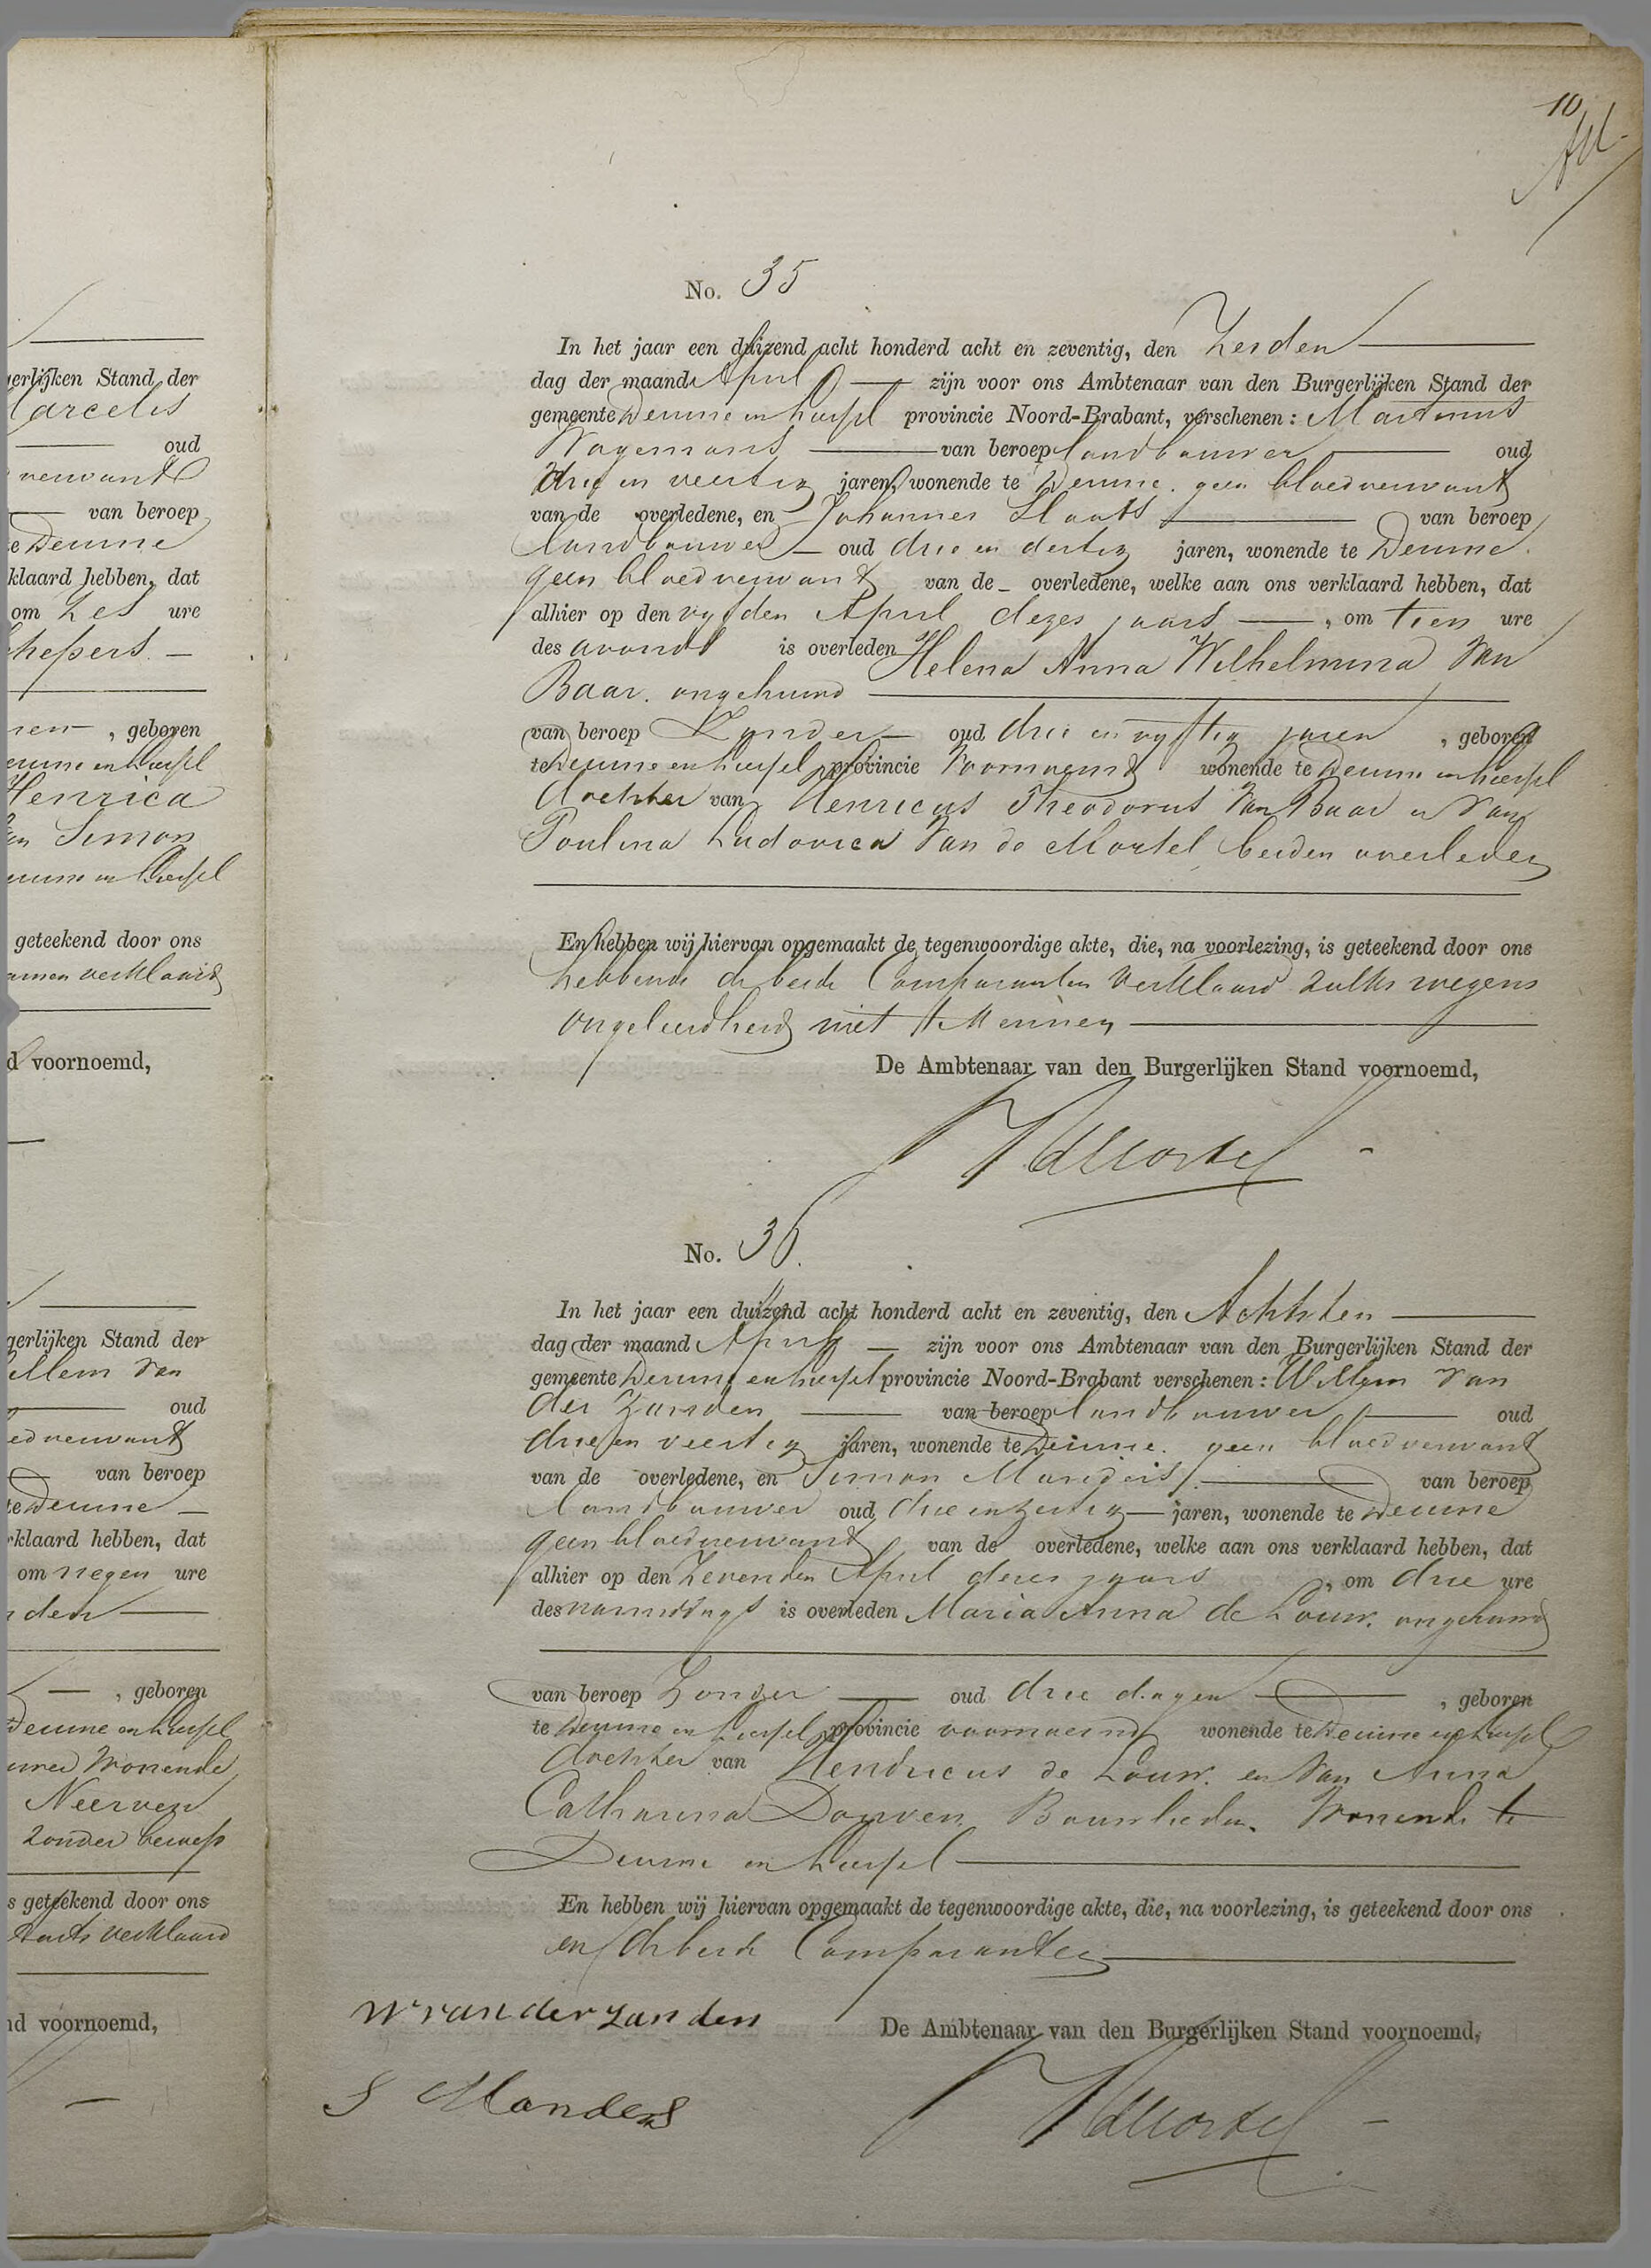 10
No. 35
In het jaar een duizend acht honderd acht en zeventig, den Zesden
dag der maand April zijn voor ons Ambtenaar van den Burgerlijken Stand der
gemeente Deurne en Liessel provincie Noord-Brabant, verschenen: Martinus
Wagemans van beroep landbouwer oud
drie en veertig jaren, wonende te Deurne. geen bloedverwant
van de overledene, en Johannes Slaats van beroep
landbouwer oud drie en dertig jaren, wonende te Deurne.
geen bloedverwant van de overledene, welke aan ons verklaard hebben, dat
alhier op den vyfden April dezes jaars, om tien ure
des avonds is overleden Helena Anna Wilhelmina Van
Baar. ongehuwd
van beroep Zonder oud drie en vyftig jaren, geboren
te Deurne en Liessel provincie Voornoemd wonende te Deurne en Liessel
dochter van Henricus Theodorus Van Baar en van
Paulina Ludovica Van de Mortel, beiden overleden
En hebben wij hiervan opgemaakt de tegenwoordige akte, die, na voorlezing, is geteekend door ons
hebbende de beide Comparanten verklaard zulks wegens
ongeleerdheid niet te kennen
De Ambtenaar van den Burgerlijken Stand voornoemd,
No. 36.
In het jaar een duizend acht honderd acht en zeventig, den Achtsten
dag der maand April zijn voor ons Ambtenaar van den Burgerlijken Stand der
gemeente Deurne en Liessel provincie Noord-Brabant verschenen: Willem van
der Zanden van beroep landbouwer oud
drie en veertig jaren, wonende te Deurne. geen bloedverwant
van de overledene, en Simon Manders van beroep
landbouwer oud drie en zestig jaren, wonende te Deurne
geen bloedverwant van de overledene, welke aan ons verklaard hebben, dat
alhier op den Zevenden April dezes jaars, om drie ure
des namiddags is overleden Maria Anna de Louw. ongehuwd
van beroep Zonder oud drie dagen, geboren
te Deurne en Liessel provincie voornoemd wonende te Deurne en Liessel
dochter van Hendricus de Louw. en van Anna
Catharina Douven, Bouwlieden. Wonende te
Deurne en Liessel
En hebben wij hiervan opgemaakt de tegenwoordige akte, die, na voorlezing, is geteekend door ons
en de beide Comparanten
W van der zanden
De Ambtenaar van den Burgerlijken Stand voornoemd,
S Manders